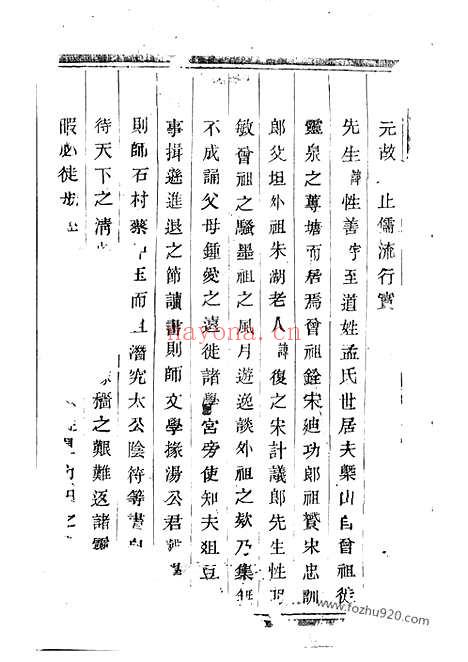 元故 止儒流行實
先生諱性善字至道姓孟氏世居夫櫱山自曾祖徙
靈泉之尊塘而居焉曾祖銓宋迪功郎祖賛宋忠訓
郎父坦外祖朱湖老人諱復之宋計議郎先生性
敏曾祖之騷墨祖之風月遊逸談外祖之欸乃集無
不成誦父母鍾愛之遠徙諸學宮旁使知夫俎豆
事揖遜進退之節讀書則師文學掾湯公君
則師石村 玉而 潛究太公陰符等書
待天下之清 艦之艱難返諸靈
暇必徒步
nayona.cn
www.fozhu920.com